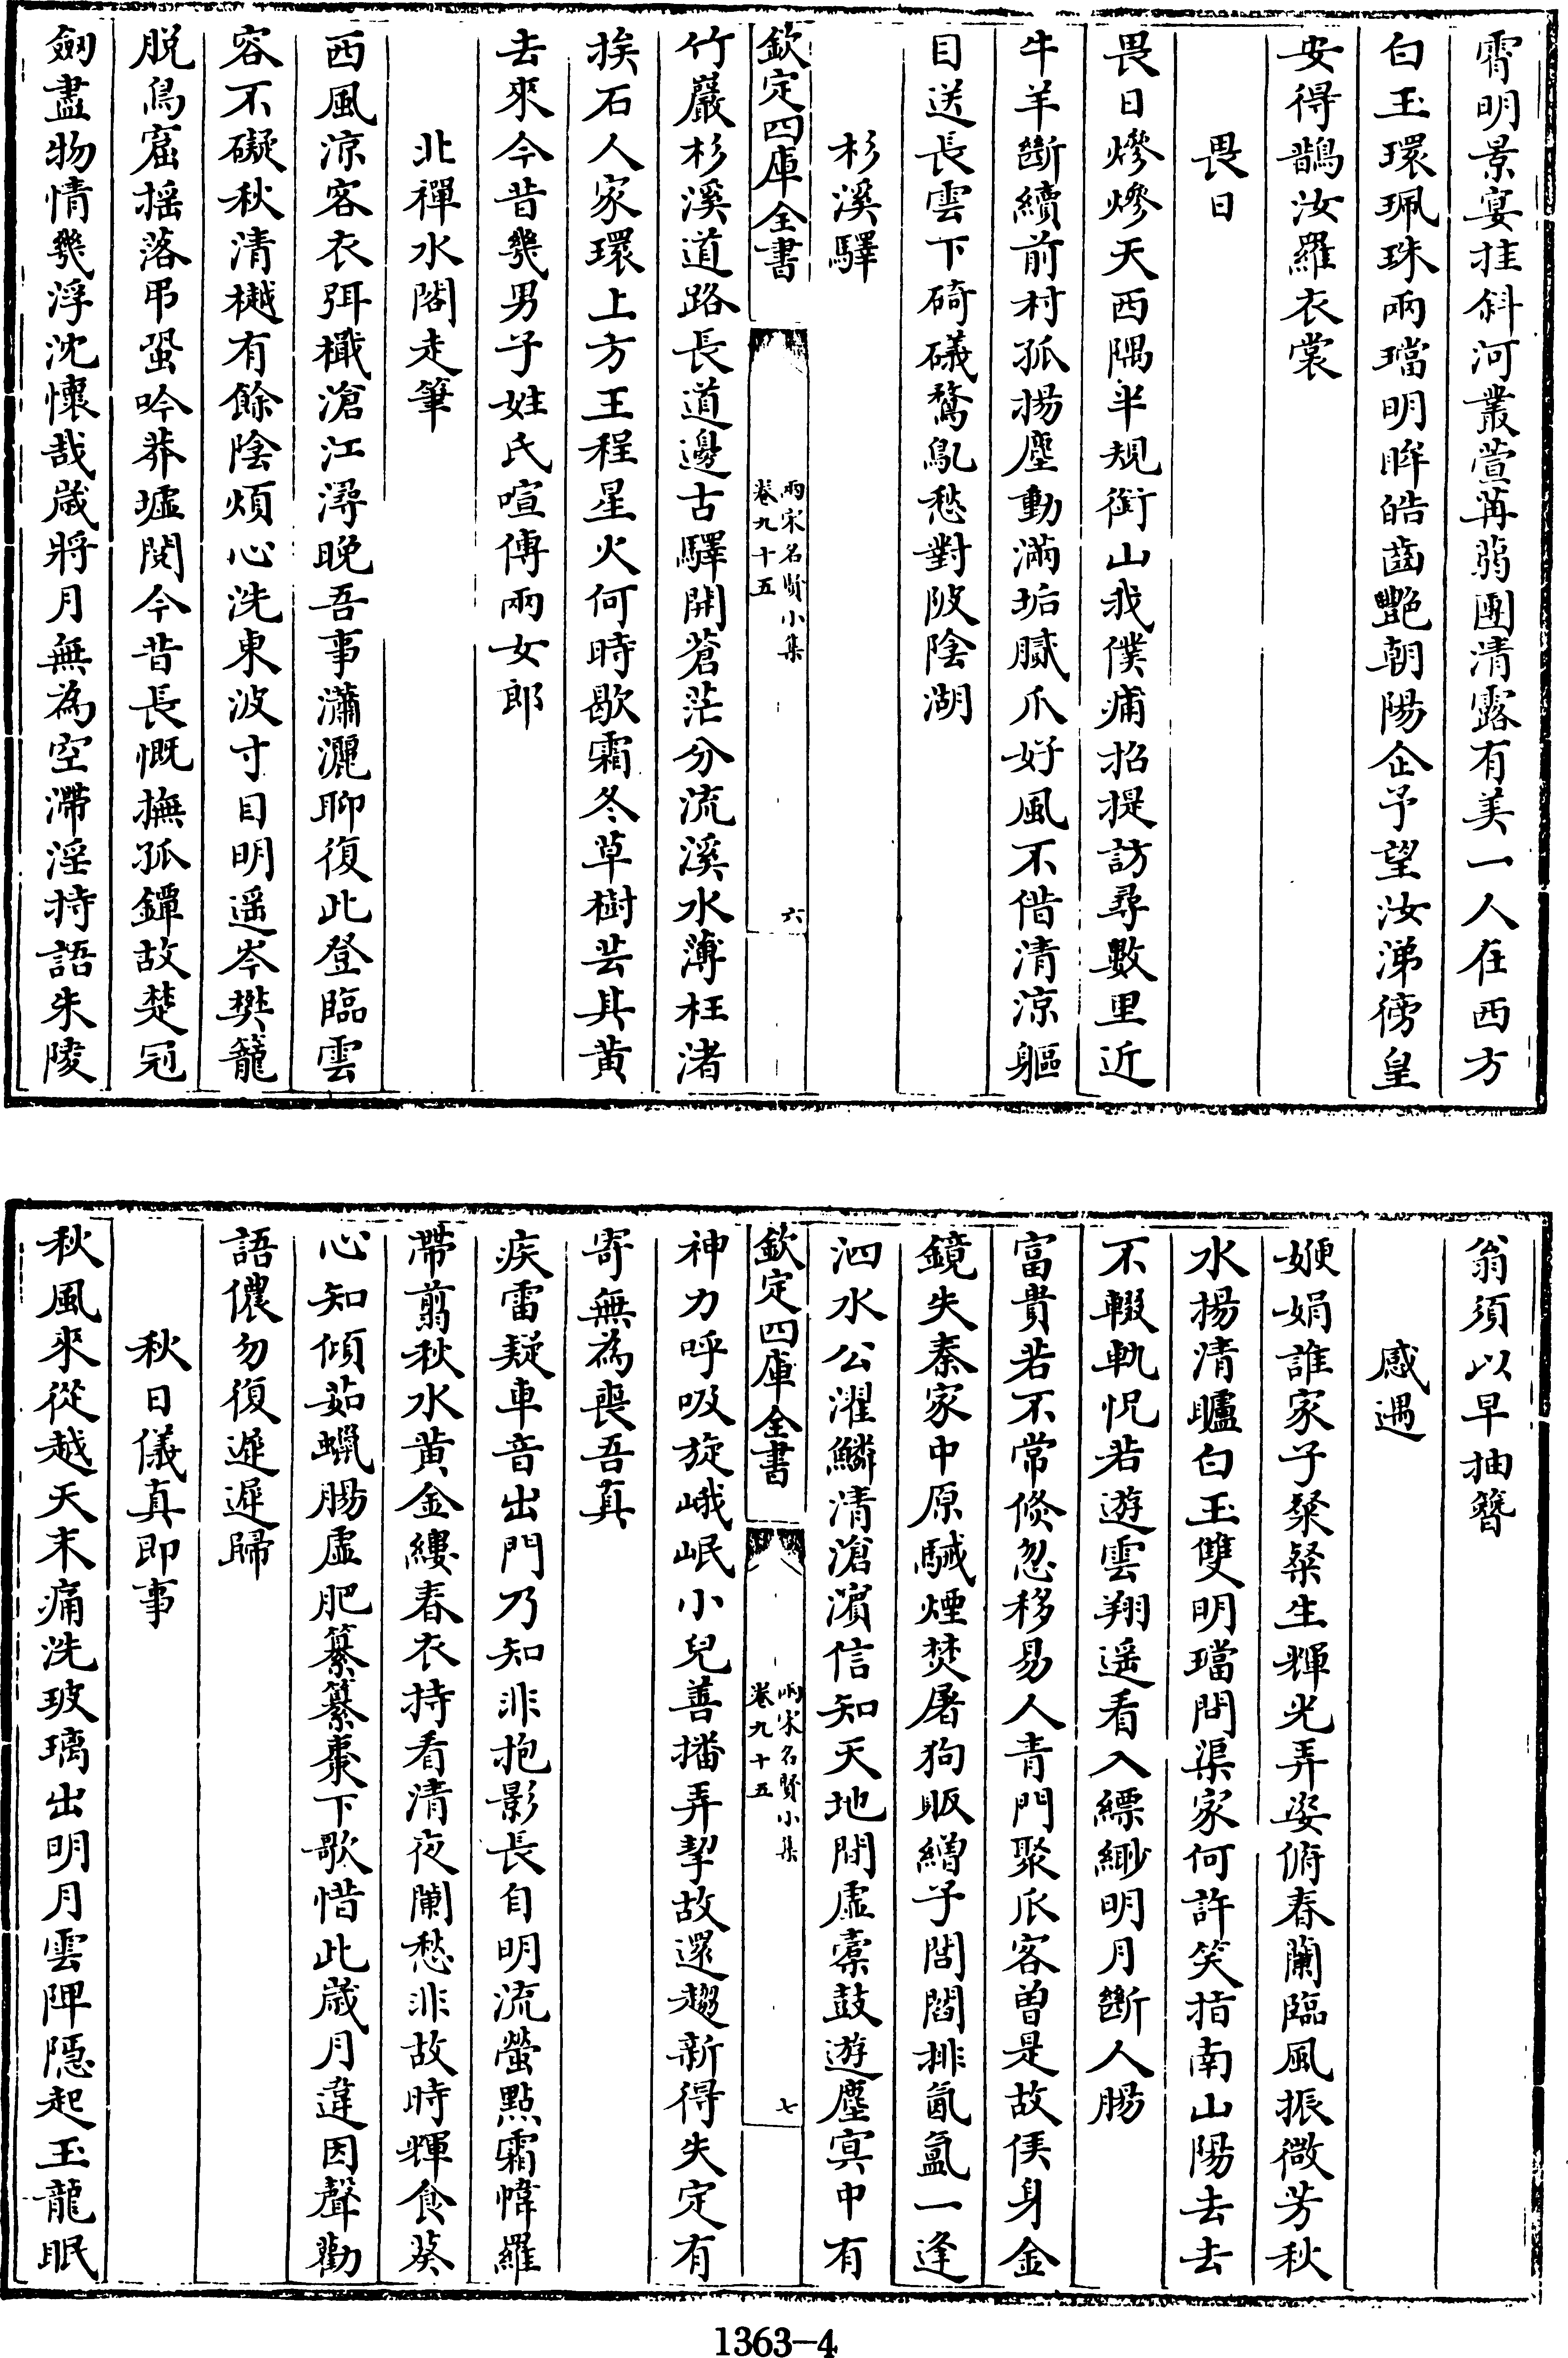 霄明景宴挂斜河叢萱苒蒻團清露有美一人在西方
白玉環珮珠兩璫明眸皓齒艷朝陽企予望汝涕徬皇
安得鵲汝羅衣裳
畏日
畏日熮熮天西隅半規銜山我僕痡招提訪尋數里近
牛羊斷續前村孤揚塵動滿垢膩爪好風不借清涼軀
目送長雲下碕礒鶩鳧愁對陂陰湖
杉溪驛
欽定四庫全書
兩宋名賢小集
卷九十五
六
竹嚴杉溪道路長道邊古驛開蒼茫分流溪水薄枉渚
挨石人家環上方王程星火何時歇霜冬草樹芸其黃
去來今昔幾男子姓氏喧傳兩女郎
北禪水閣走筆
西風涼客衣弭檝滄江潯晚吾事瀟灑聊復此登臨雲
容不礙秋清樾有餘陰煩心洗東波寸目明遥岑樊籠
脱鳥窟摇落弔蛩吟莽墟閱今昔長慨撫孤鐔故楚冠
劒盡物情幾浮沈懷哉歲將月無為空滯淫持語朱陵
翁須以早抽簪
感遇
㛹娟誰家子粲粲生輝光弄姿俯春蘭臨風振微芳秋
水揚清矑白玉雙明璫問渠家何許笑指南山陽去去
不輟軌怳若遊雲翔遥看入縹緲明月斷人腸
富貴若不常倐忽移易人青門聚瓜客曾是故侯身金
鏡失秦家中原駴煙焚屠狗販繒子閶闔排氤氳一逢
泗水公濯鱗清滄濵信知天地間虛橐鼓遊塵㝠中有
欽定四庫全書
兩宋名賢小集
卷九十五
七
神力呼吸旋峨岷小兒善播弄挈故還趨新得失定有
寄無為喪吾真
疾雷疑車音出門乃知非抱影長自明流螢點霜幃羅
帶翦秋水黃金縷春衣持看清夜闌愁非故時輝食葵
心知傾茹蠟腸虛肥纂纂棗下歌惜此歲月違因聲勸
語儂勿復遲遲歸
秋日儀真即事
秋風來從越天末痛洗玻璃出明月雲陣隱起玉龍眠
1363-4